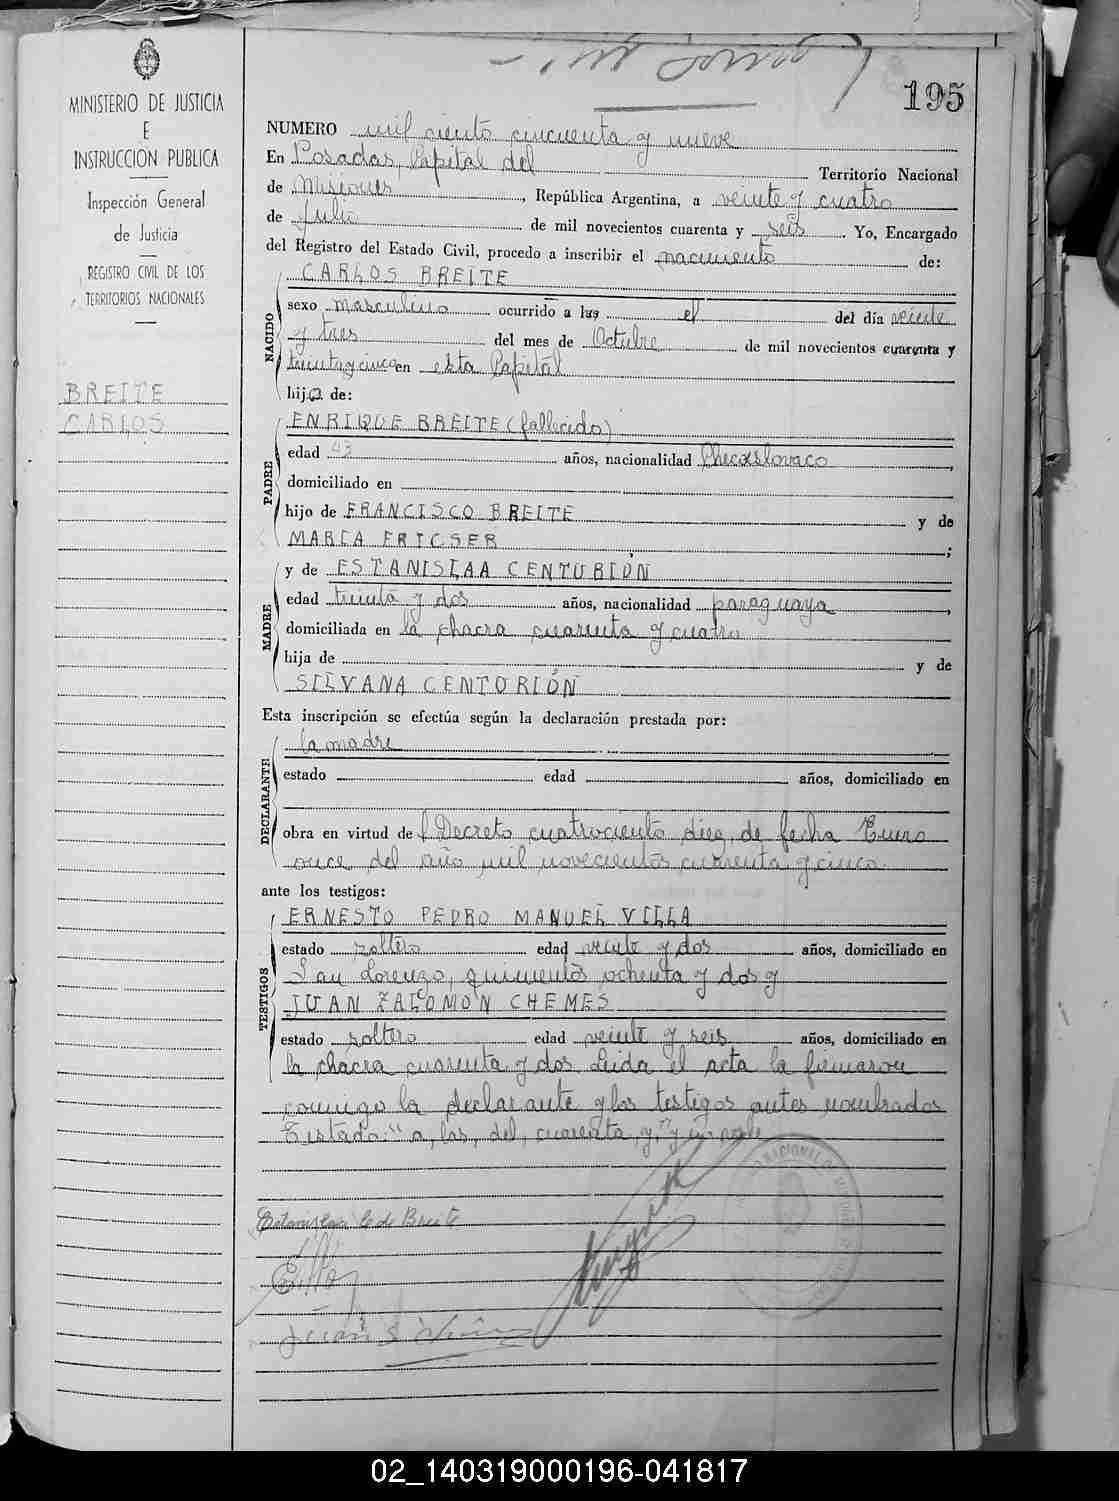 195
MINISTERIO DE JUSTICIA
E
INSTRUCCION PUBLICA
Inspección General
de Justicia
REGISTRO CIVIL DE LOS
TERRITORIOS NACIONALES
BREITE
CARLOS
NUMERO mil ciento cincuenta y nueve
En Posadas, Capital del Territorio Nacional
de Misiones, República Argentina, a veinte y cuatro
de Julio de mil novecientos cuarenta y seis Yo, Encargado
del Registro del Estado Civil, procedo a inscribir el nacimiento de:
CARLOS BREITE
NACIDO
sexo masculino ocurrido a las el del día veinte
y tres del mes de Octubre de mil novecientos cuarenta y
treinta y cinco en esta Capital
hijo de:
ENRIQUE BREITE (fallecido)
PADRE
edad 43 años, nacionalidad Checoslovaco
domiciliado en
hijo de FRANCISCO BREITE y de
MARIA ERICSER;
y de ESTANISLAA CENTURIÓN
MADRE
edad treinta y dos años, nacionalidad paraguaya,
domiciliada en la chacra cuarenta y cuatro
hija de y de
SILVANA CENTORIÓN
Esta inscripción se efectúa según la declaración prestada por:
la madre
DECLARANTE
estado edad años, domiciliado en
obra en virtud de Decreto cuatrociento diez, de fecha Enero
once del año mil novecientos cuarenta y cinco.
ante los testigos:
ERNESTO PEDRO MANUEL VILLA
TESTIGOS
estado soltero edad veinte y dos años, domiciliado en
San Lorenzo, quinientos ochenta y dos y
JUAN ZALOMÓN CHEMES
estado soltero edad veinte y seis años, domiciliado en
la chacra cuarenta y dos Leida el acta la firmaron
conmigo la declarante y los testigos antes nombrados
Testado: "a, las, del, cuarenta, y," y
Estanislaa C de Breite
02_140319000196-041817